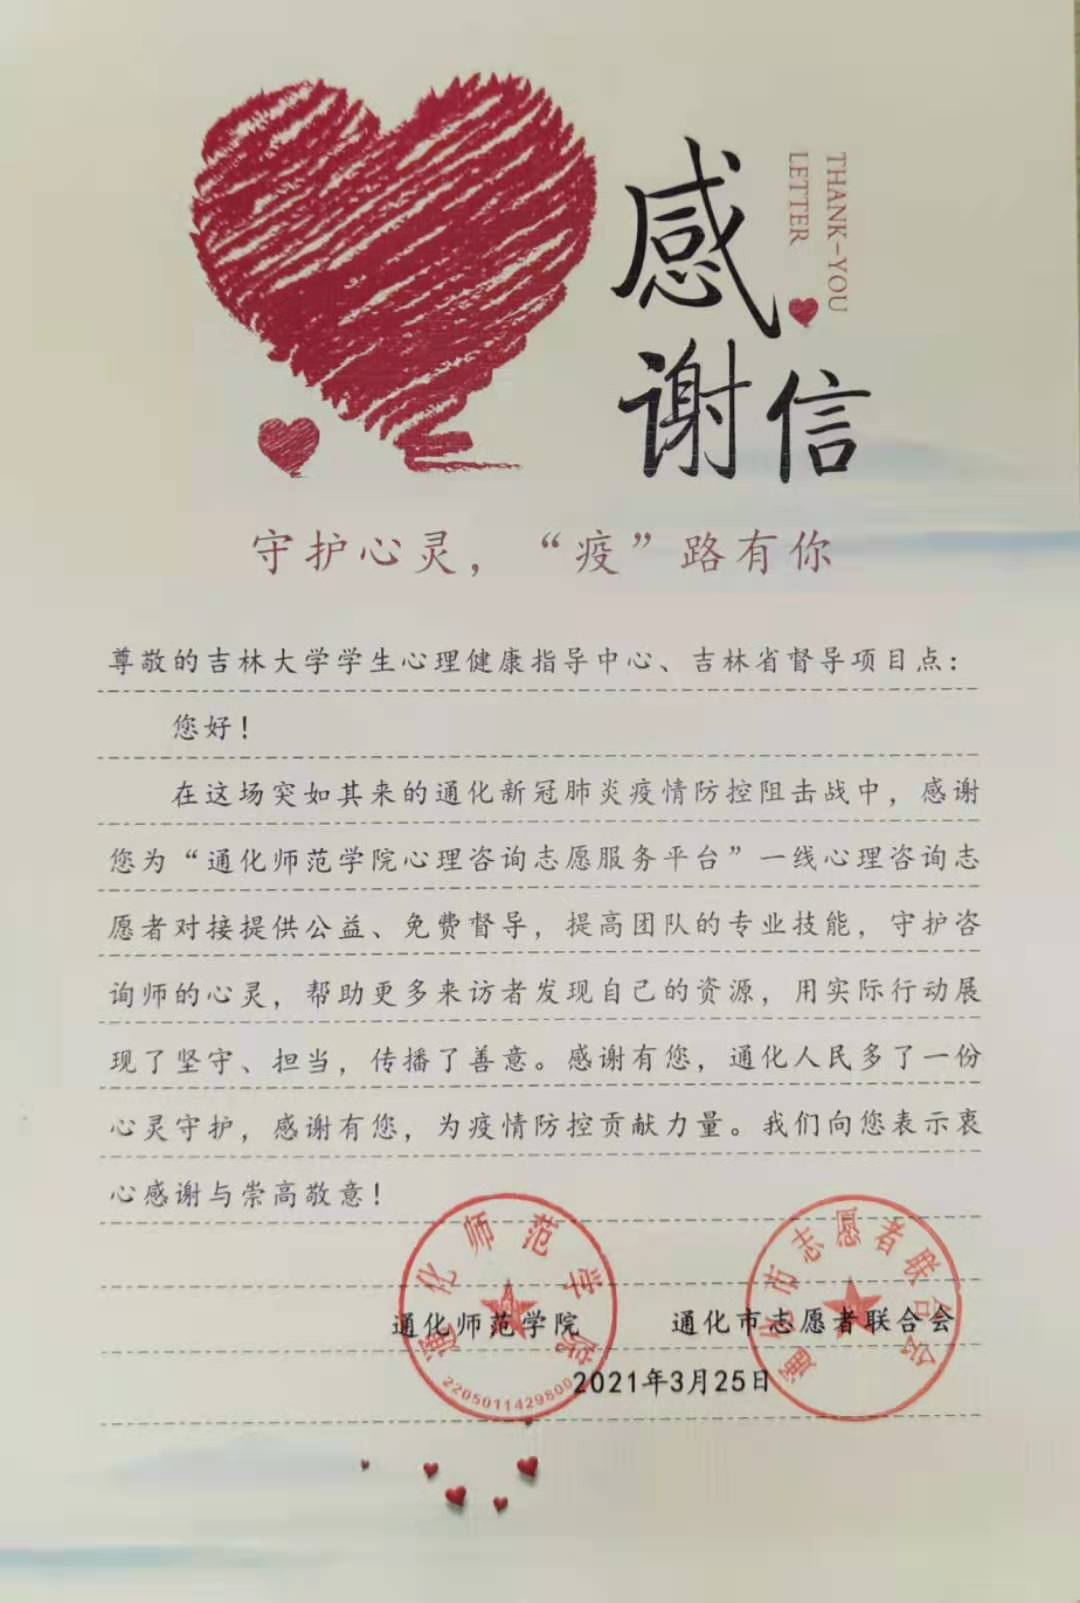 感谢信
THANK-YOU
LETTER
守护心灵，“疫”路有你
尊敬的吉林大学学生心理健康指导中心、吉林省督导项目点：
您好！
在这场突如其来的通化新冠肺炎疫情防控阻击战中，感谢
您为“通化师范学院心理咨询志愿服务平台”一线心理咨询志
愿者对接提供公益、免费督导，提高团队的专业技能，守护咨
询师的心灵，帮助更多来访者发现自己的资源，用实际行动展
现了坚守、担当，传播了善意。感谢有您，通化人民多了一份
心灵守护，感谢有您，为疫情防控贡献力量。我们向您表示衷
心感谢与崇高敬意！
通化师范学院 通化市志愿者联合会
2021年3月25日
通化师范学院
2205011429800
通化市志愿者联合会